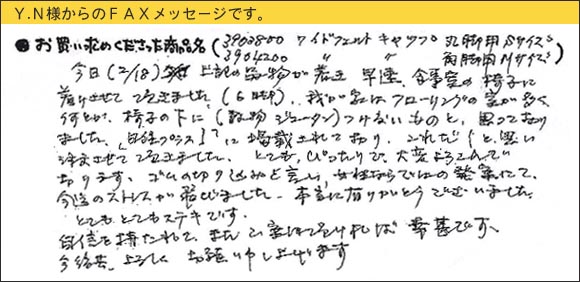 Ｙ.Ｎ様からのＦＡＸメッセージです。
●お買い求めくださった商品名（3903800 ワイドフェルトキャップ 丸脚用Sサイズ
3904200 〃 〃 角脚用Mサイズ）
今日(2/18) 上記の品物が着き 早速、食事室の椅子に
着けさせて頂きました。(6脚)、我が家はフローリングの室が多く、
何とか、椅子の下に(敷物 ジュータン)つけないものと、思っており
ました、に掲載されており、これだ!と思い
注文させて頂きました。とても、ぴったりで、大変よろこんで
おります、ゴムの切り込みと言い、女性ならではの発案にて、
今迄のストレスが飛びました。本当に有りがとうございました。
とてもとてもステキです。
自信を持たれて、また
今後共、よろしくお願い申し上げます